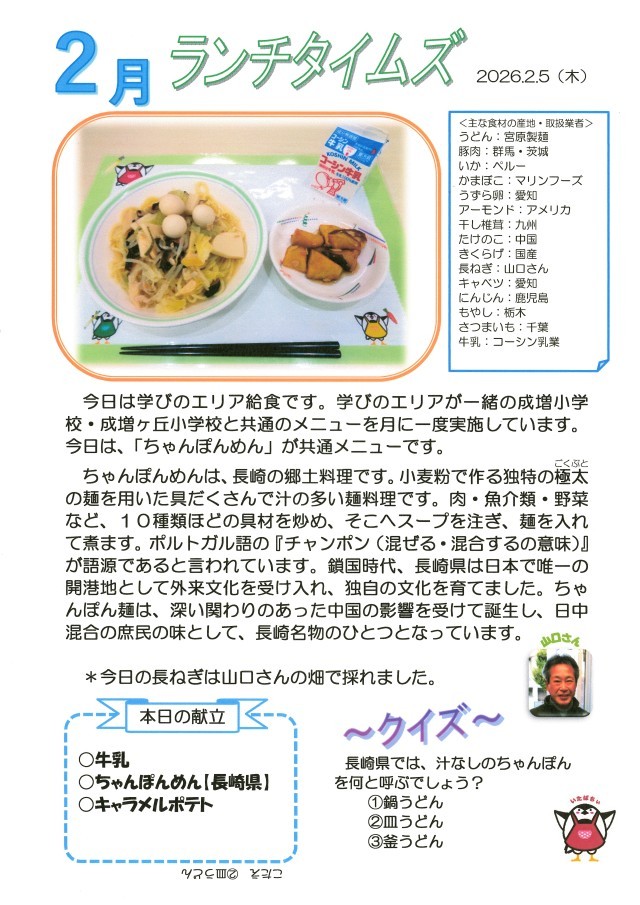 2月 ランチタイムズ 2026.2.5（木）
＜主な食材の産地・取扱業者＞
うどん：宮原製麺
豚肉：群馬・茨城
いか：ペルー
かまぼこ：マリンフーズ
うずら卵：愛知
アーモンド：アメリカ
干し椎茸：九州
たけのこ：中国
きくらげ：国産
長ねぎ：山口さん
キャベツ：愛知
にんじん：鹿児島
もやし：栃木
さつまいも：千葉
牛乳：コーシン乳業
コーシン
牛乳
KOSHIN MILK
コーシン牛乳
今日は学びのエリア給食です。学びのエリアが一緒の成増小学
校・成増ヶ丘小学校と共通のメニューを月に一度実施しています。
今日は、「ちゃんぽんめん」が共通メニューです。
ごくぶと
ちゃんぽんめんは、長崎の郷土料理です。小麦粉で作る独特の極太
の麺を用いた具だくさんで汁の多い麺料理です。肉・魚介類・野菜
など、１０種類ほどの具材を炒め、そこへスープを注ぎ、麺を入れ
て煮ます。ポルトガル語の『チャンポン（混ぜる・混合するの意味）』
が語源であると言われています。鎖国時代、長崎県は日本で唯一の
開港地として外来文化を受け入れ、独自の文化を育てました。ちゃ
んぽん麺は、深い関わりのあった中国の影響を受けて誕生し、日中
混合の庶民の味として、長崎名物のひとつとなっています。
山口さん
＊今日の長ねぎは山口さんの畑で採れました。
本日の献立
○牛乳
○ちゃんぽんめん【長崎県】
○キャラメルポテト
～クイズ～
長崎県では、汁なしのちゃんぽん
を何と呼ぶでしょう？
①鍋うどん
②皿うどん
③釜うどん
いたばちぃ
こたえ ②皿うどん